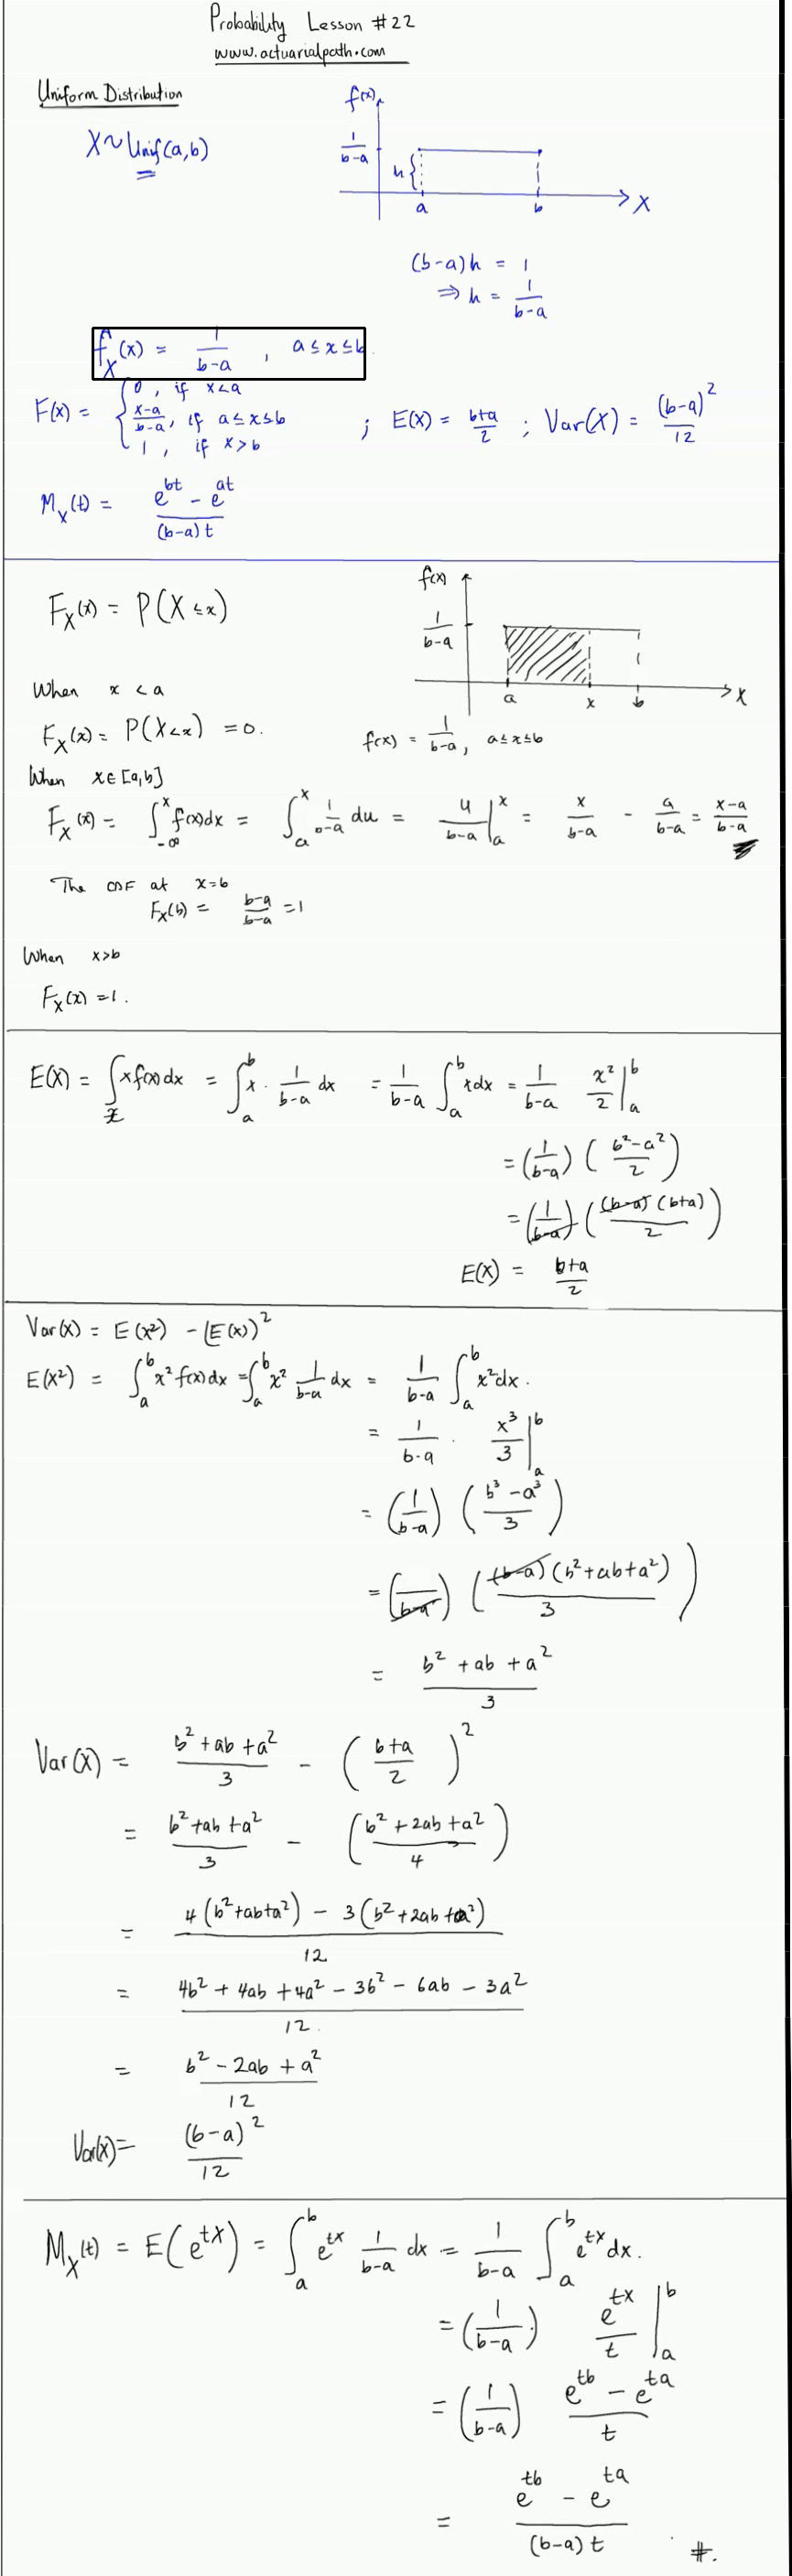 Probability Lesson #22
www.actuarialpath.com
Uniform Distribution
X ~ Unif(a,b)
f(x)
1/(b-a)
h{
a b X
(b-a)h = 1
⇒ h = 1/(b-a)
f_X(x) = 1/(b-a) , a ≤ x ≤ b
F(x) = { 0, if x<a
(x-a)/(b-a), if a ≤ x ≤ b
1, if x>b
; E(X) = (b+a)/2 ; Var(X) = (b-a)^2/12
M_X(t) = (e^{bt} - e^{at})/((b-a)t)
F_X(x) = P(X ≤ x)
f(x)
1/(b-a)
a x b X
f(x) = 1/(b-a), a ≤ x ≤ b
When x < a
F_X(x) = P(X<x) = 0.
When x ∈ [a,b]
F_X(x) = ∫_{-∞}^{x} f(x)dx = ∫_a^x 1/(b-a) du = u/(b-a) |_a^x = x/(b-a) - a/(b-a) = (x-a)/(b-a)
The CDF at x=b
F_X(b) = (b-a)/(b-a) = 1
When x>b
F_X(x) = 1.
E(X) = ∫_x x f(x) dx = ∫_a^b x · 1/(b-a) dx = 1/(b-a) ∫_a^b x dx = 1/(b-a) x^2/2 |_a^b
= (1/(b-a)) ((b^2-a^2)/2)
= (1/(b-a)) ((b-a)(b+a)/2)
E(X) = (b+a)/2
Var(X) = E(X^2) - (E(X))^2
E(X^2) = ∫_a^b x^2 f(x) dx = ∫_a^b x^2 1/(b-a) dx = 1/(b-a) ∫_a^b x^2 dx.
= 1/(b-a) · x^3/3 |_a^b
= (1/(b-a)) ((b^3 - a^3)/3)
= (1/(b-a)) ((b-a)(b^2+ab+a^2)/3)
= (b^2 + ab + a^2)/3
Var(X) = (b^2 + ab + a^2)/3 - ((b+a)/2)^2
= (b^2 + ab + a^2)/3 - ((b^2 + 2ab + a^2)/4)
= (4(b^2+ab+a^2) - 3(b^2+2ab+a^2))/12
= (4b^2 + 4ab + 4a^2 - 3b^2 - 6ab - 3a^2)/12.
= (b^2 - 2ab + a^2)/12
Var(X) = (b-a)^2/12
M_X(t) = E(e^{tX}) = ∫_a^b e^{tx} 1/(b-a) dx = 1/(b-a) ∫_a^b e^{tx} dx.
= (1/(b-a)) e^{tx}/t |_a^b
= (1/(b-a)) (e^{tb} - e^{ta})/t
= (e^{tb} - e^{ta})/((b-a)t) #.